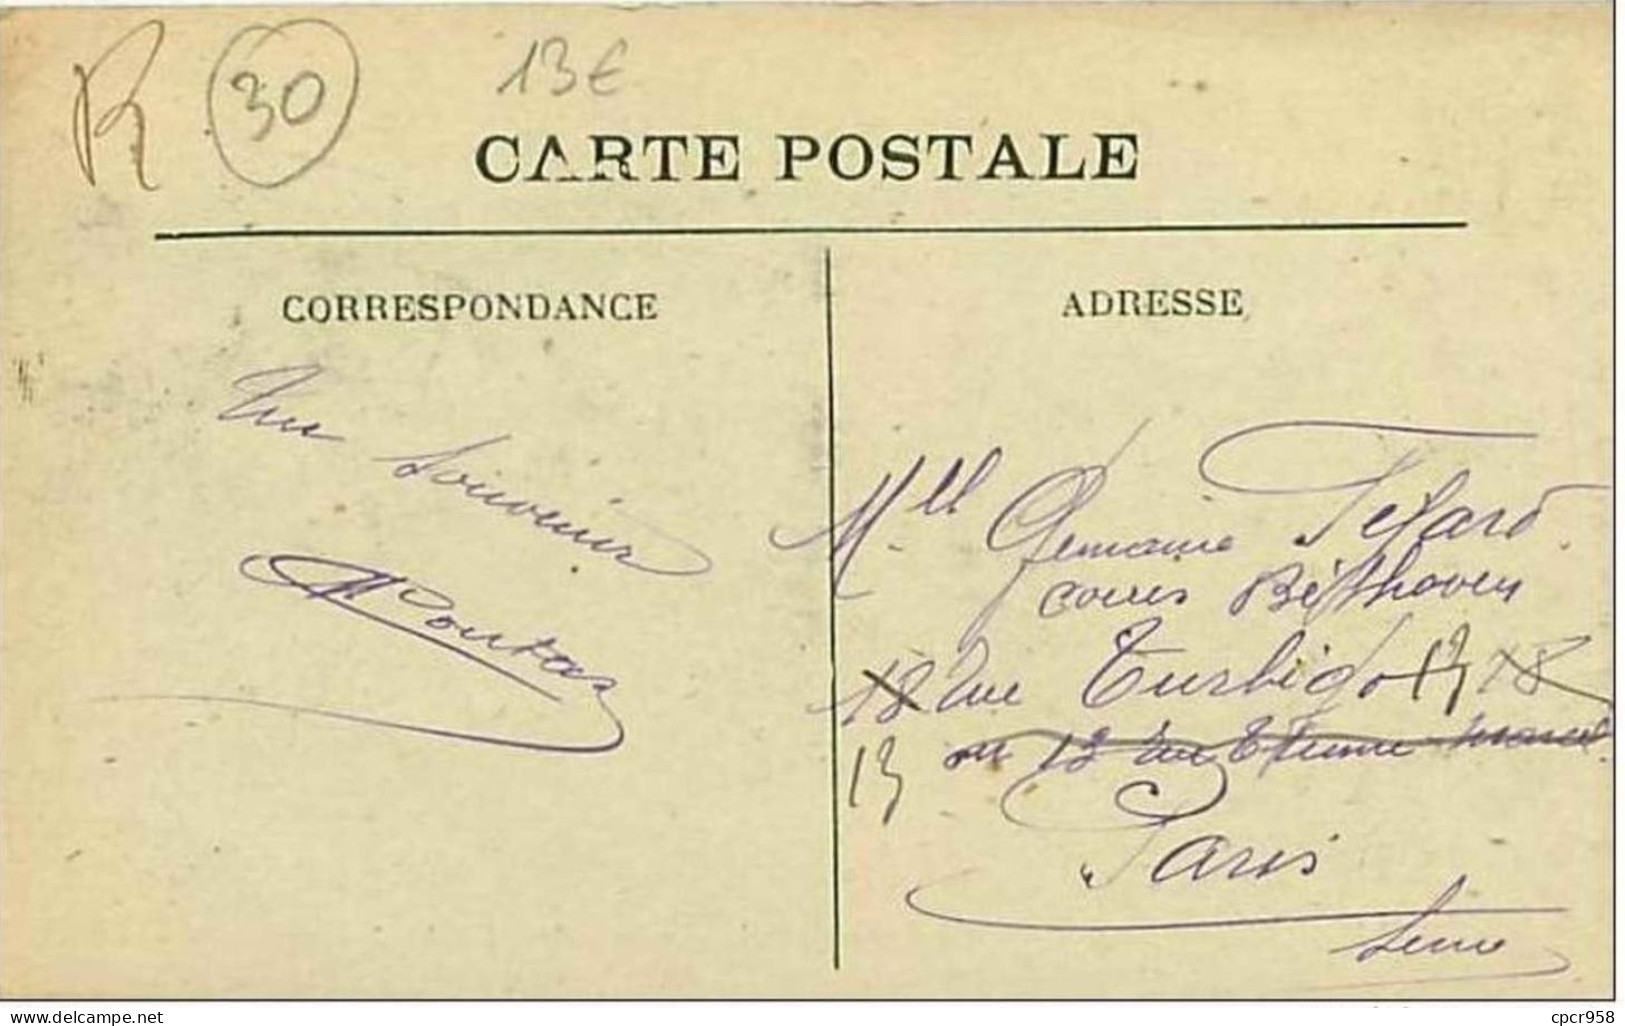 R 30 13€
CARTE POSTALE
CORRESPONDANCE
ADRESSE
Souvenir
Mlle Germaine
cours Béthoven
18 Rue Turbigo 13 18
13
ou 13 Rue Etienne Marcel
Paris
Seine
cpcr958
www.delcampe.net